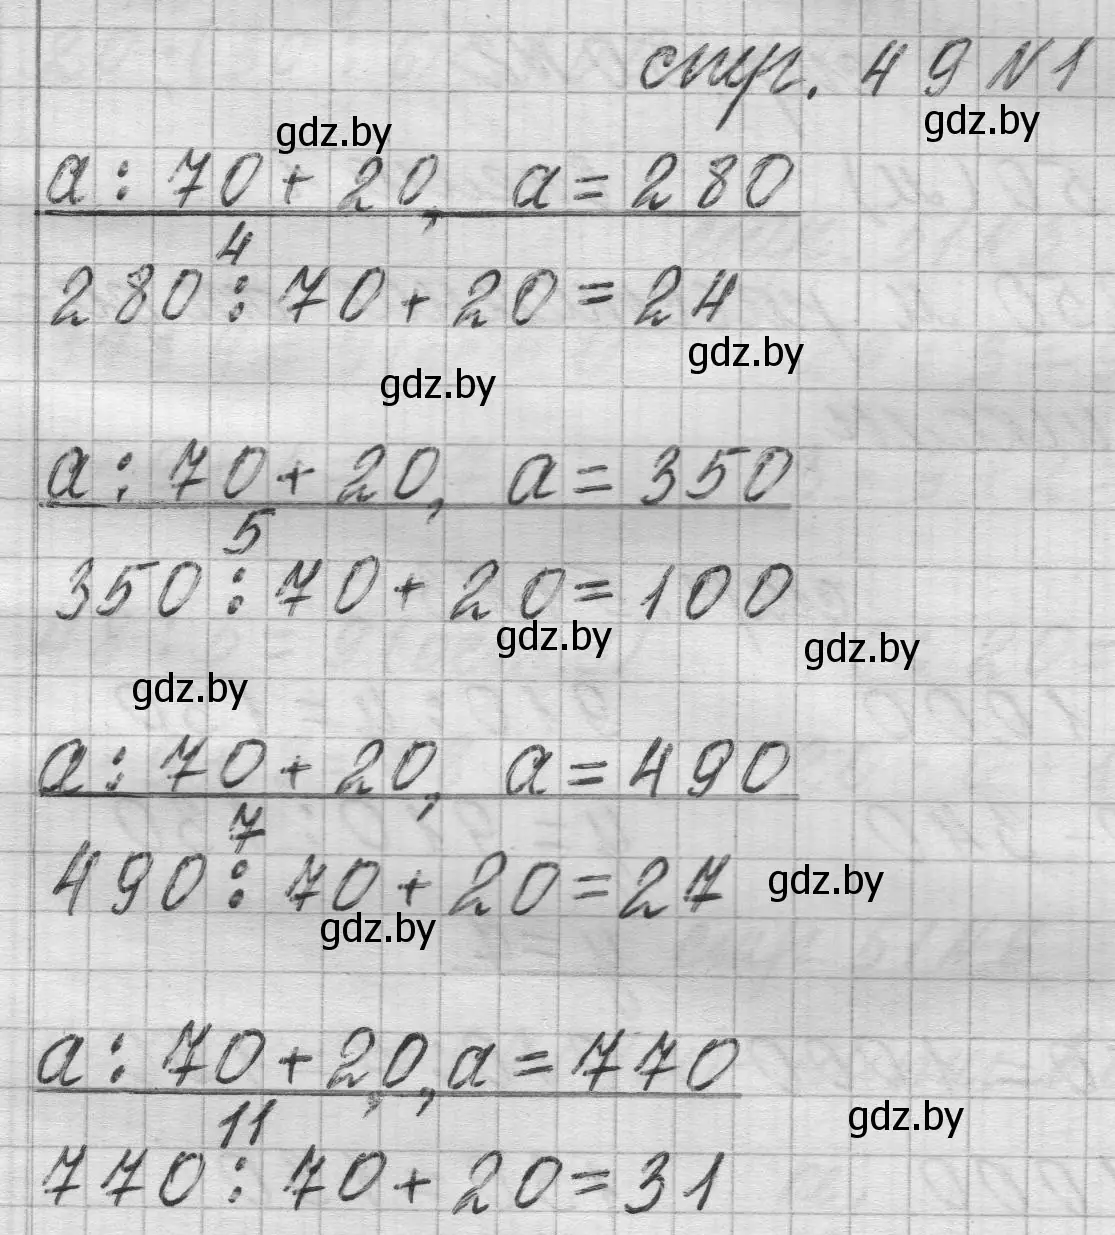 стр. 49 №1
gdz.by gdz.by
a : 70 + 20, a = 280
4
280 : 70 + 20 = 24
gdz.by
gdz.by
a : 70 + 20, a = 350
5
350 : 70 + 20 = 100
gdz.by gdz.by
gdz.by
a : 70 + 20, a = 490
7
490 : 70 + 20 = 27
gdz.by
gdz.by
a : 70 + 20, a = 770
11
gdz.by
770 : 70 + 20 = 31